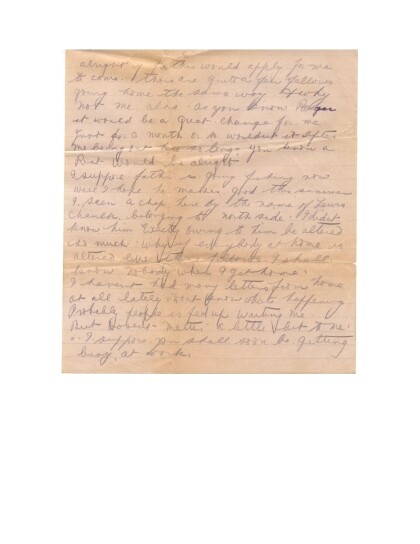 alright if father would apply for me
to come. there are quite a few fellows
going home the same way & why
not me also. as you know
it would be a great change for me
just for a month or so wouldn't it after
me being so long you know a
Rest would be alright
I suppose father is going fishing now
well I hope he makes good this summer
I seen a chap here by the name of Lewis
belonging to north side. I didnt
know him owing to him be altered
so much. why if everybody at home is
altered like I shall
know nobody when I get home.
I havent had many letters from home
at all lately dont know whats happening
Probably people is fed up writing me.
But matter a little bit to me.
I suppose you shall soon be getting
busy at work.